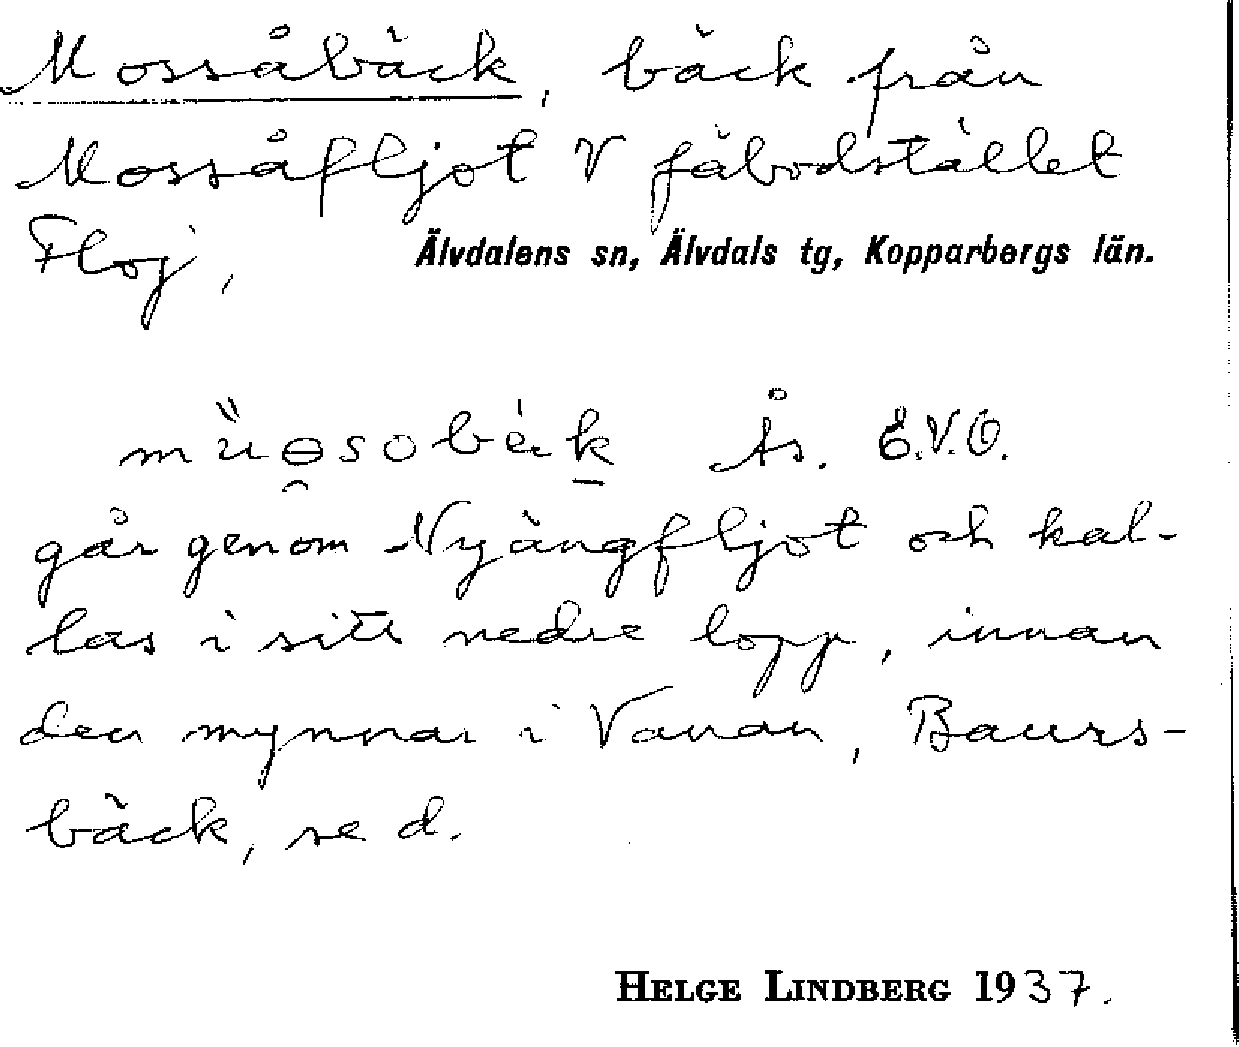 Mossåbäck, bäck från
Mossåfljot V fäbodstället
Floj,
Älvdalens sn, Älvdals tg, Kopparbergs län.
Ås. E.V.O.
går genom Nyängfljot och kal-
las i sitt nedre lopp, innan
den mynnar i Vanan, Baurs-
bäck, se d.
HELGE LINDBERG 1937.